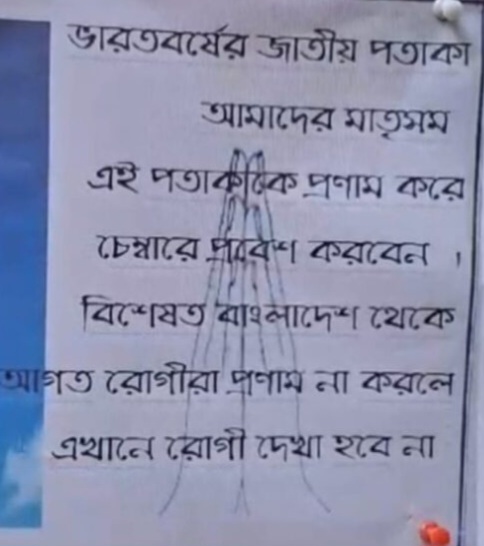 ভারতবর্ষের জাতীয় পতাকা
আমাদের মাতৃসম
এই পতাকাটিকে প্রণাম করে
চেম্বারে প্রবেশ করবেন ।
বিশেষত বাংলাদেশ থেকে
আগত রোগীরা প্রণাম না করলে
এখানে রোগী দেখা হবে না